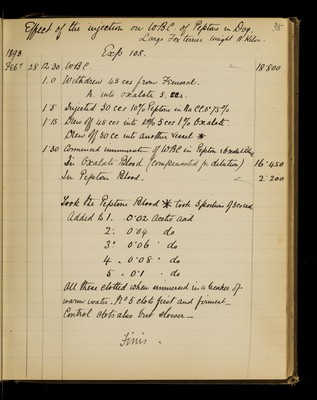 Effect of the injection on W.B.C. of Pepton in Dog. 35
Large Fox terrier weight 11 Kilos.
1893 Exp 108.
Feb 28 12.30 W.B.C. 18.800
1.0 Withdrew 45 ccs from Femoral.
A. into oxalate 5.
1.5 Injected 30 ccs 10% Pepton in Na Cl 0.75%
1.15 Drew off 45 ccs into 5 ccs 1% Oxalate.
Drew off 30 cc into another vessel *
1.30 Commenced enumeration of WBC in Pepton & Oxalate Blood
In Oxalate Blood (compensated for dilution) 16.450
In Pepton Blood. 2.200
Took the Peptone Blood * took 5 portions of 3 cc and
added to 1. 0.02 Acetic acid
2. 0.04 do
3. 0.06 do
4. 0.08 do
5. 0.1 do
All these clotted when immersed in a beaker of
warm water. No 5 clots first and firmest
Control clots also but slower
Finis.